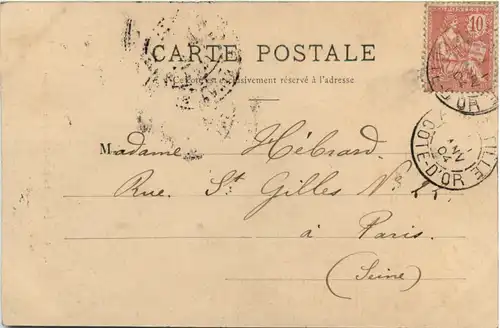 10
CARTE POSTALE
Ce côté est exclusivement réservé à l'adresse
Madame Hébrard.
Rue St Gilles No 22.
à Paris.
(Seine)
JANV
04
COTE-D'OR